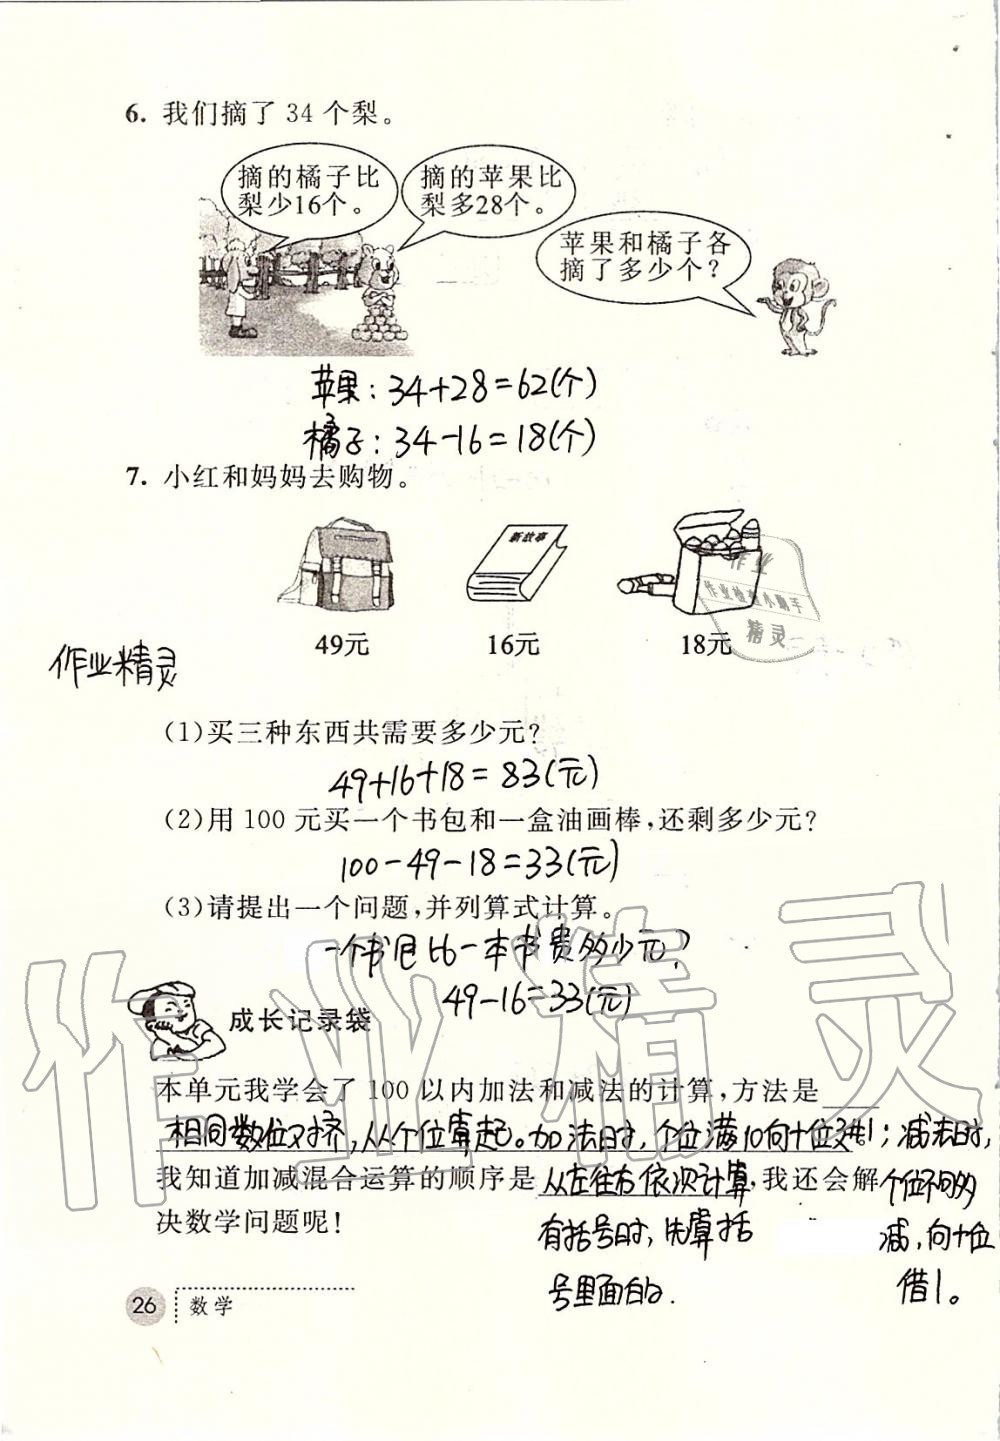 6. 我们摘了 34 个梨。
摘的橘子比
梨少16个。
摘的苹果比
梨多28个。
苹果和橘子各
摘了多少个?
苹果:34+28=62(个)
橘子:34-16=18(个)
7. 小红和妈妈去购物。
新故事
49元 16元 18元
作业
作业检查小助手
精灵
作业精灵
(1)买三种东西共需要多少元?
49+16+18=83(元)
(2)用 100 元买一个书包和一盒油画棒,还剩多少元?
100-49-18=33(元)
(3)请提出一个问题,并列算式计算。
一个书包比一本书贵多少元?
49-16=33(元)
作业精灵
成长记录袋
本单元我学会了 100 以内加法和减法的计算,方法是
相同数位对齐,从个位算起。加法时,个位满10向十位进1;减法时,
我知道加减混合运算的顺序是 从左往右依次计算,我还会解 个位不够
决数学问题呢! 有括号时,先算括 减,向十位
号里面的. 借1。
26 数学